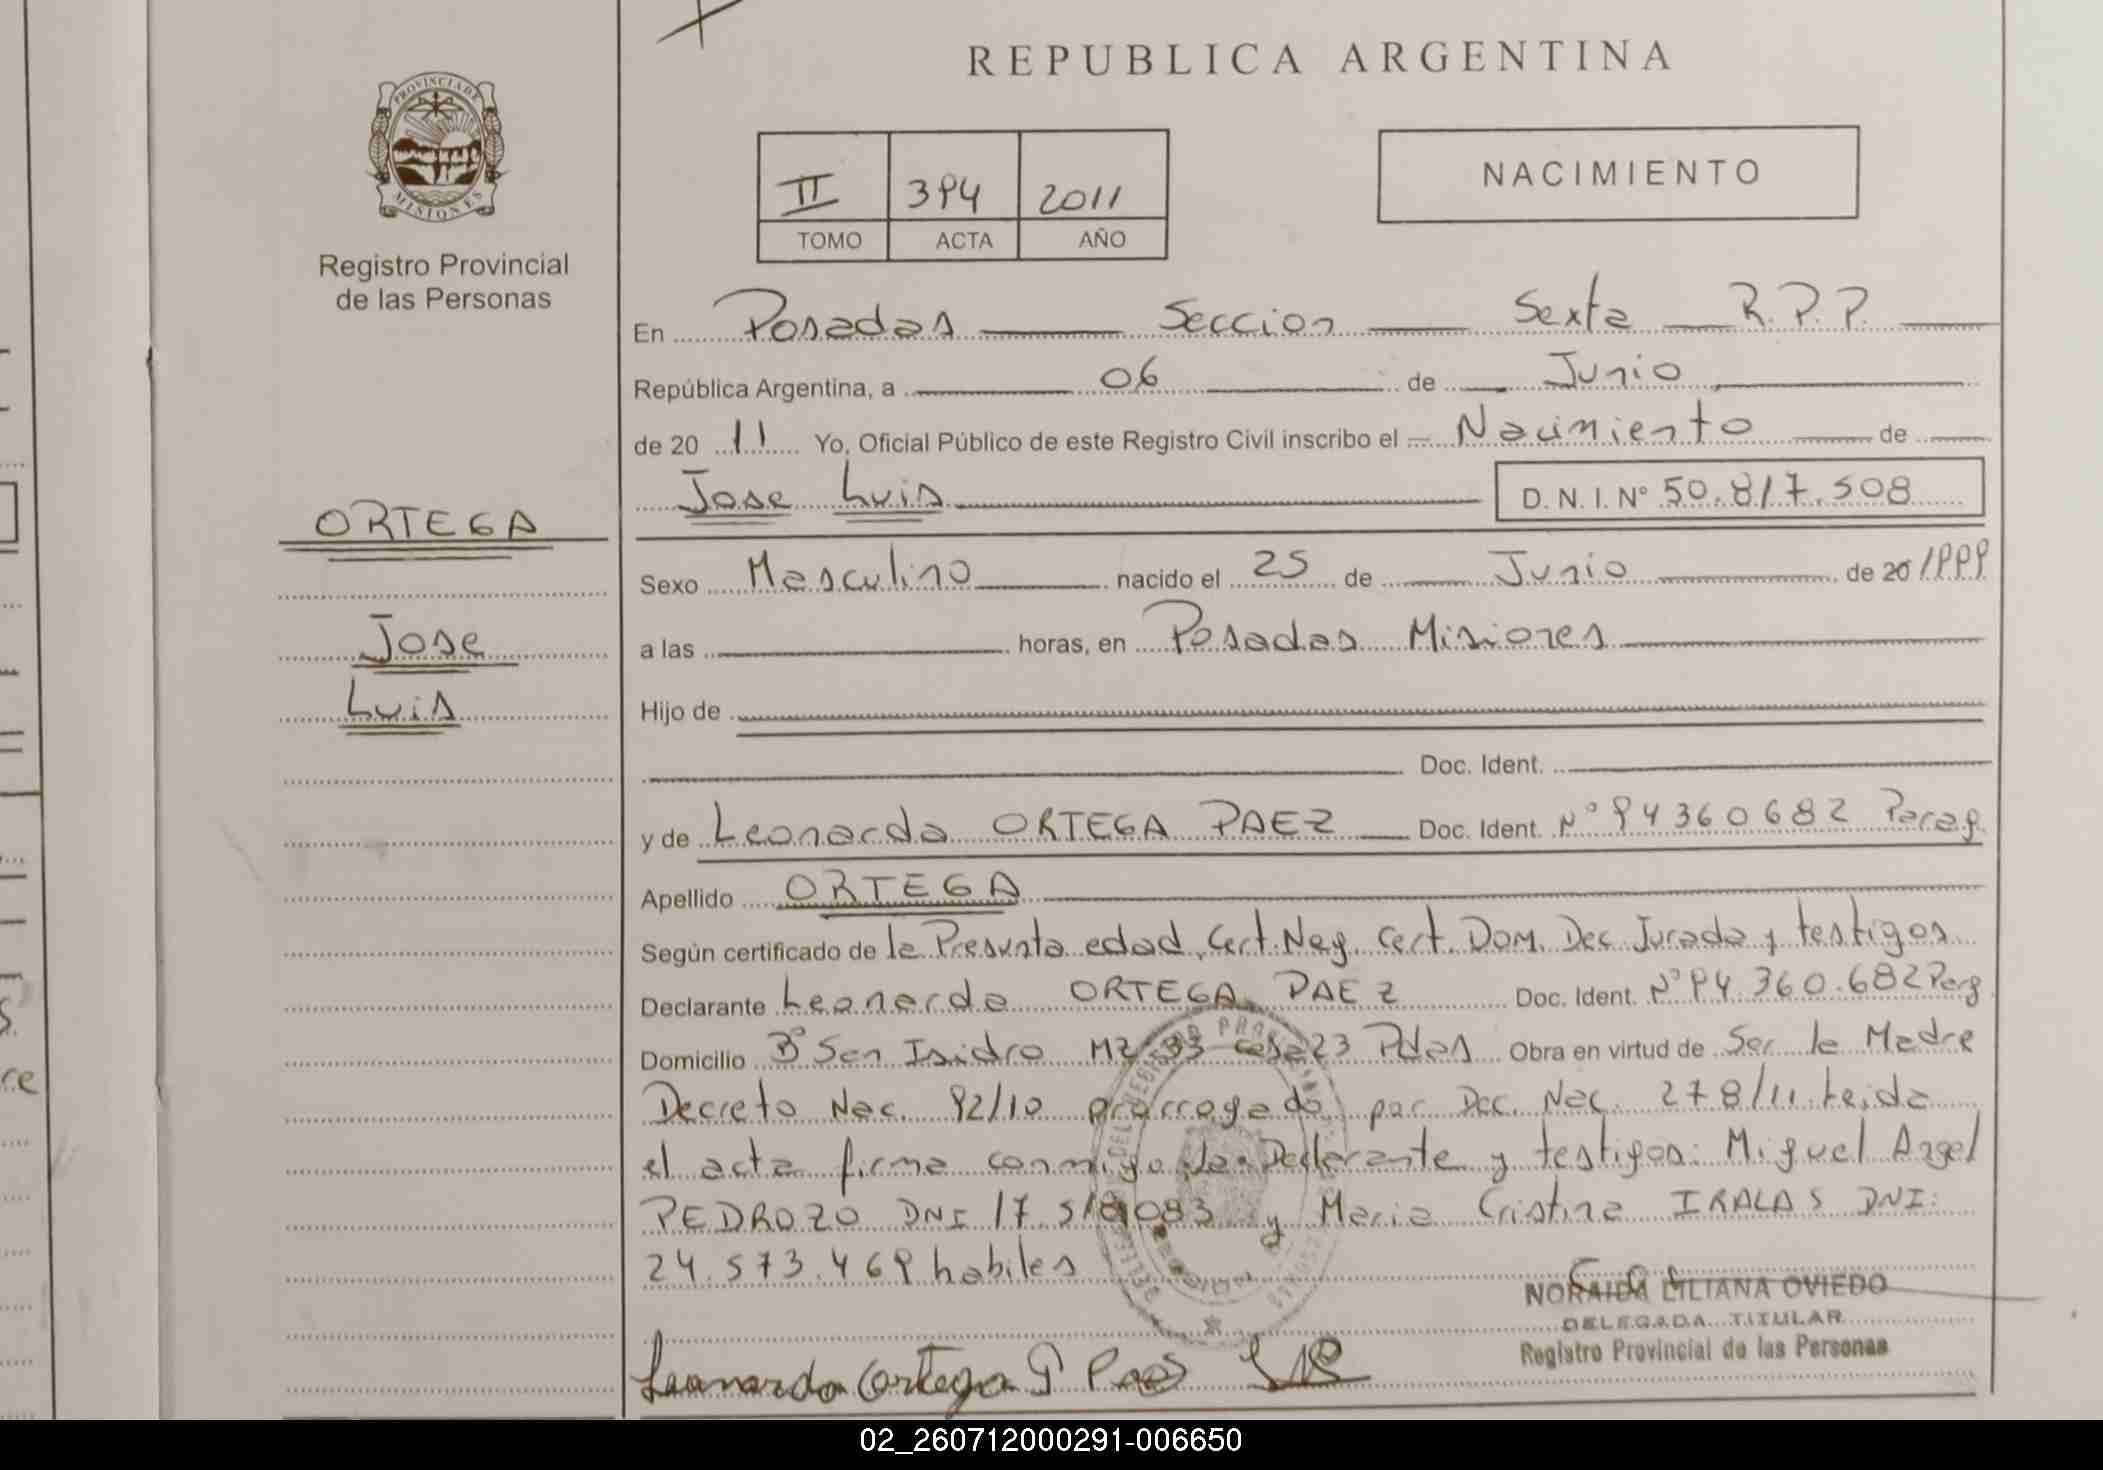 REPUBLICA ARGENTINA
PROVINCIA DE
MISIONES
Registro Provincial
de las Personas
II 394 2011
TOMO ACTA AÑO
NACIMIENTO
En Posadas Seccion Sexta R.P.P.
República Argentina, a 06 de Junio
de 20 11 Yo, Oficial Público de este Registro Civil inscribo el Nacimiento de
Jose Luis D.N.I. Nº 50.817.508
ORTEGA
Jose
Luis
Sexo Masculino nacido el 25 de Junio de 20 1999
a las horas, en Posadas Misiones
Hijo de
Doc. Ident.
y de Leonarda ORTEGA PAEZ Doc. Ident. Nº 94360682 Parag.
Apellido ORTEGA
Según certificado de la Presunta edad, Cert. Neg. Cert. Dom. Dec Jurada y testigos
Declarante Leonarda ORTEGA PAEZ Doc. Ident. Nº 94.360.682 Parg
Domicilio Bº San Isidro MZ 33 casa 23 Pdas Obra en virtud de Ser la Madre
Decreto Nac. 92/10 prorrogado por Dec. Nac. 278/11. Leida
el acta firma conmigo la Declarante y testigos: Miguel Angel
PEDROZO DNI 17.518.083 y Maria Cristina IRALAS DNI:
24.573.469 habiles
NORAIDA LILIANA OVIEDO
DELEGADA TITULAR
Registro Provincial de las Personas
Leonarda Ortega P Paes
02_260712000291-006650